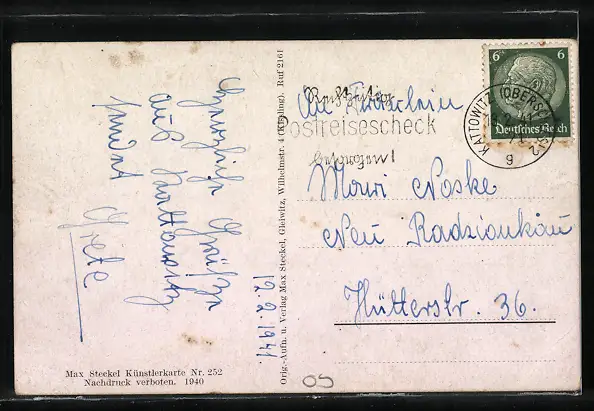 Herzliche Grüße
aus Kattowitz
sendet
Grete
12.2.1941.
Max Steckel Künstlerkarte Nr. 252
Nachdruck verboten. 1940
Orig.-Aufn. u. Verlag Max Steckel, Gleiwitz, Wilhelmstr. 4 (Kißling). Ruf 2161
Postreisescheck
besorgen!
6 6
Deutsches Reich
KATTOWITZ (OBERSCHLES) 2
g
An Fräulein
Mari Noske
Neu Radzionkau
Hütterstr. 36.